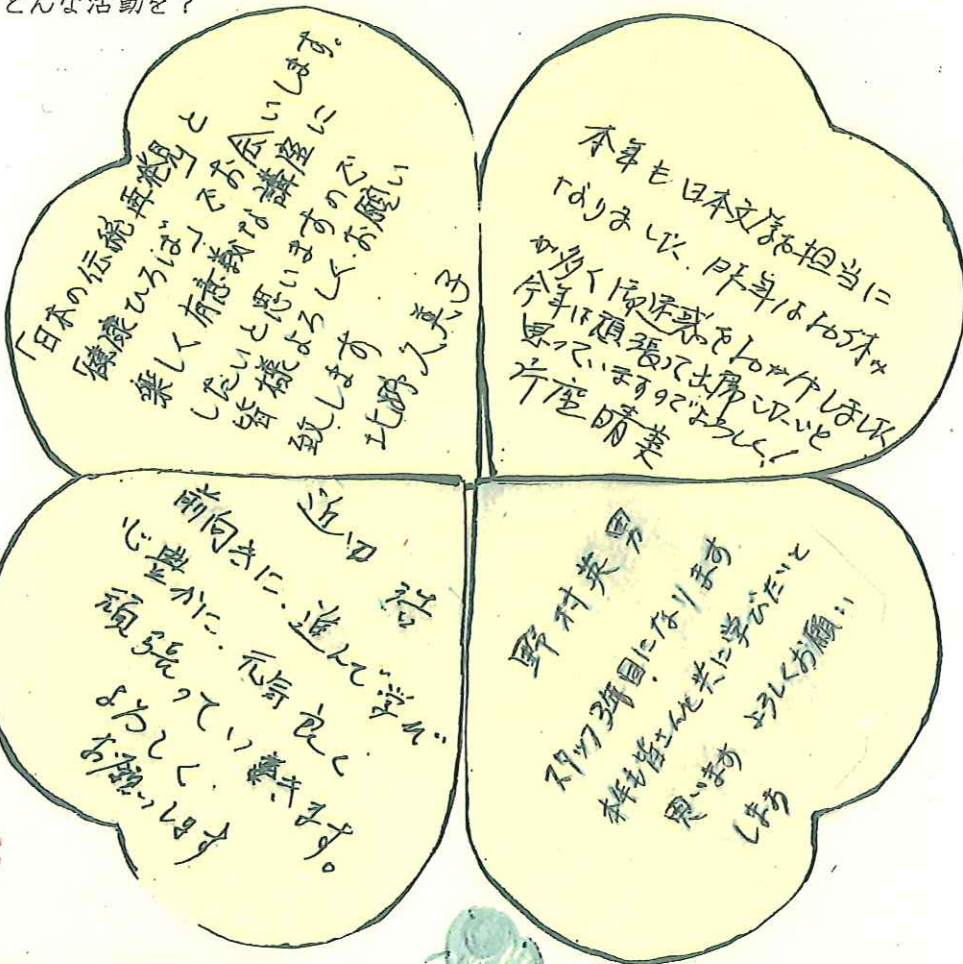 どんな活動を?
「日本の伝統再発見」と
「健康ひろば」でお会いします。
楽しく有意義な講座に
したいと思いますので
皆様よろしくお願い
致します
久美子
本年も日本文学を担当に
なりました。昨年はお休み
が多く御迷惑をおかけしました
今年は頑張って出席したいと
思っていますのでよろしく!
片座晴美
近口 浩
前向きに、進んで学び
心豊かに、元気良く
頑張っていきます。
よろしく、
お願いします
野村英男
スタッフ3年目になります
本年も皆さんと共に学びたいと
思います よろしくお願い
します